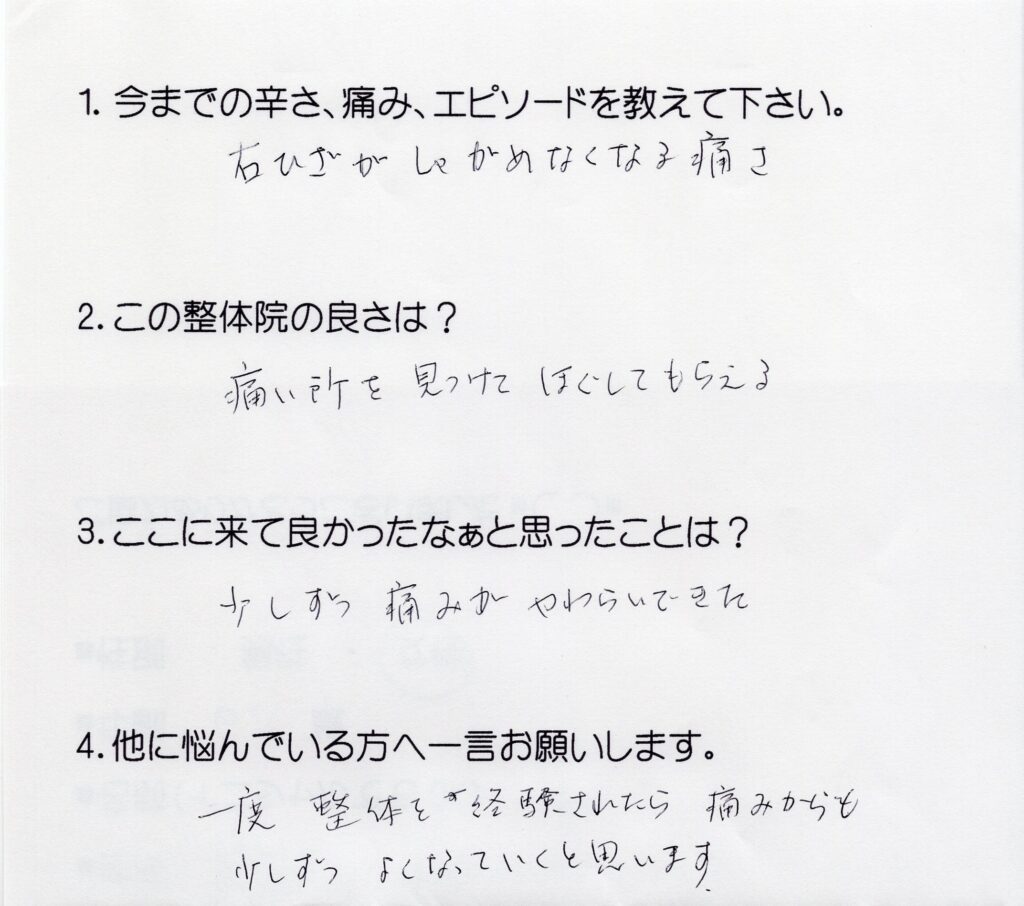 1. 今までの辛さ、痛み、エピソードを教えて下さい。
右ひざが しゃがめなくなる痛さ
2. この整体院の良さは？
痛い所を 見つけて ほぐしてもらえる
3. ここに来て良かったなぁと思ったことは？
少しずつ 痛みが やわらいできた
4. 他に悩んでいる方へ一言お願いします。
一度 整体を 経験されたら 痛みからも
少しずつ よくなっていくと思います